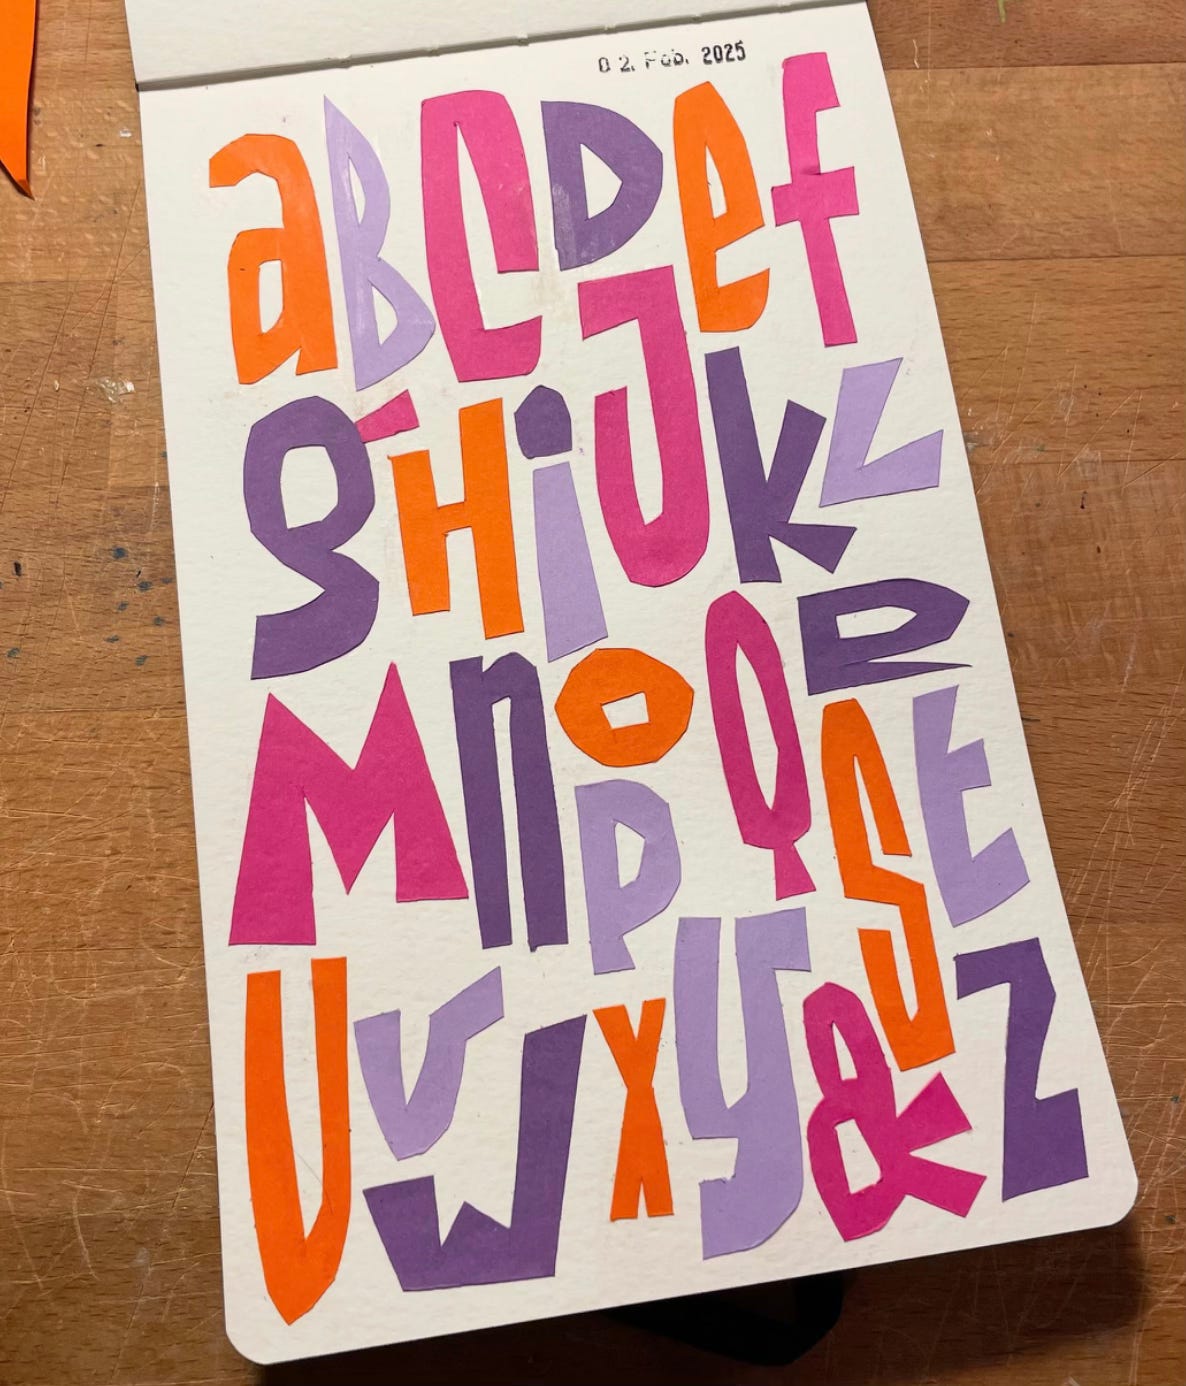 02. Feb. 2025
aBCDef
gHiJkL
MnoPQRSt
UvWxy&Z